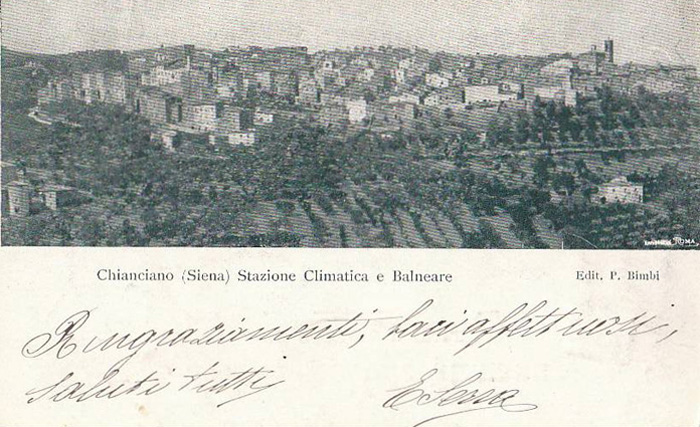 ROMA
Chianciano (Siena) Stazione Climatica e Balneare
Edit. P. Bimbi
Ringraziamenti, baci affettuosi,
saluti tutti